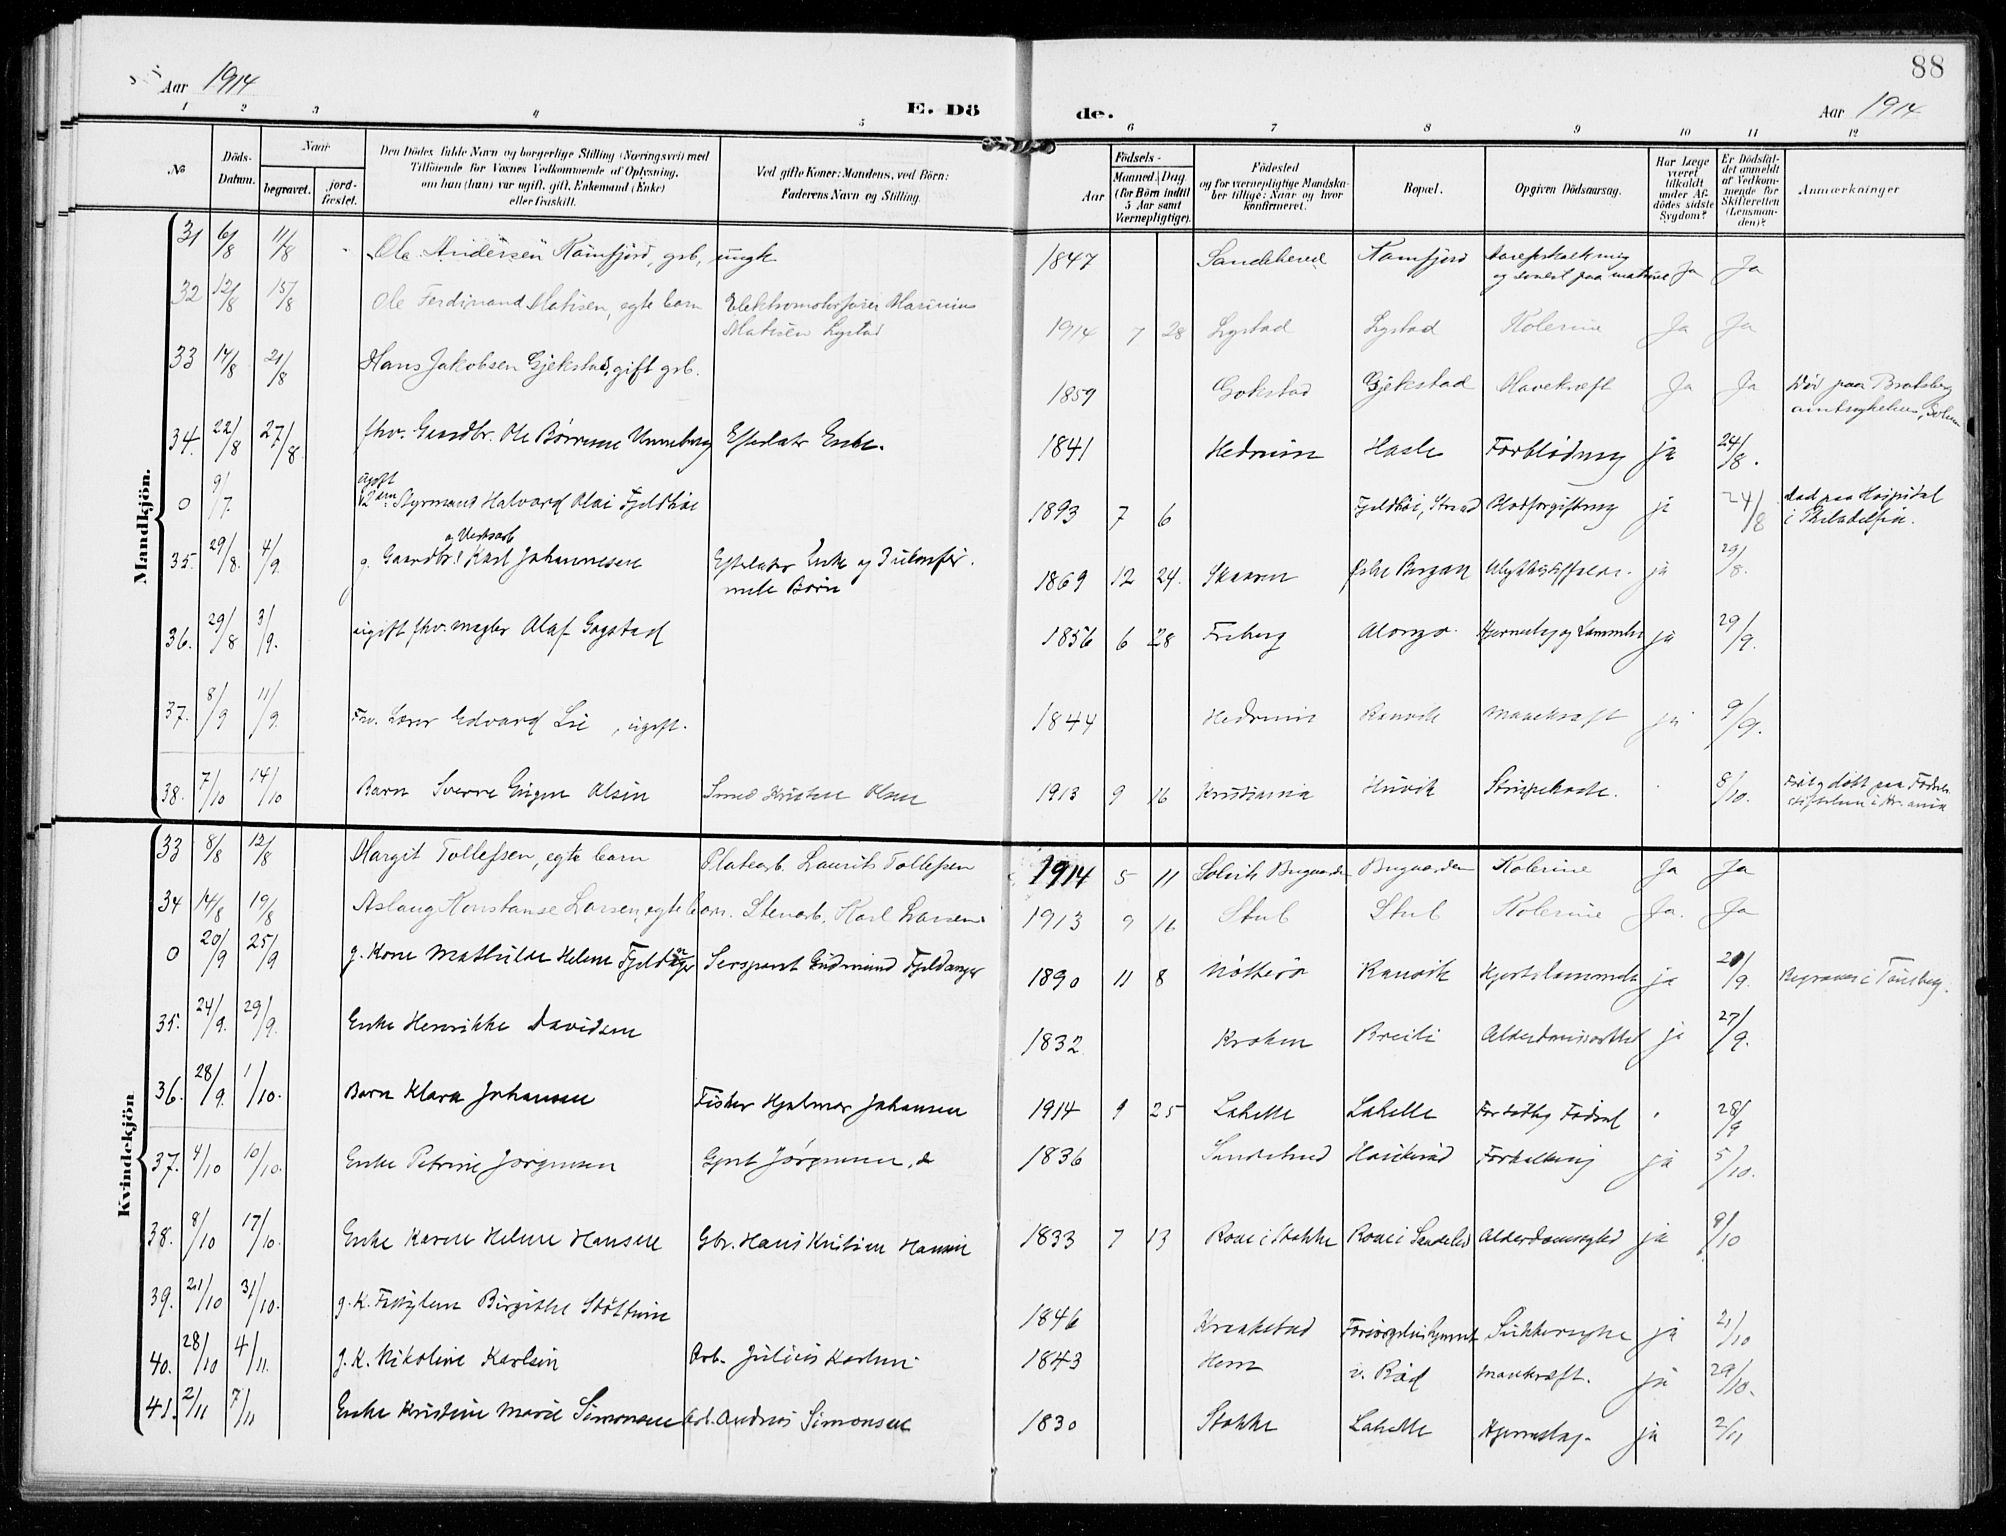 88
Aar 1914
E. Dö
de.
Aar 1914
1 2 3 4 5 6 7 8 9 10 11 12
No
Döds-
Datum.
Naar
begravet.
jord-
fæstet.
Den Dödes fulde Navn og borgerlige Stilling (Næringsvei) med
Tilföiende for Voxnes Vedkommende af Oplysning,
om han (hun) var ugift, gift, Enkemand (Enke)
eller fraskilt.
Ved gifte Koner: Mandens, ved Börn:
Faderens Navn og Stilling.
Födsels-
Aar
Maaned. Dag
(for Börn indtil
5 Aar samt
Værnepligtige).
Födested
og for værnepligtige Mandska-
ber tillige: Naar og hvor
konfirmeret.
Bopæl.
Opgiven Dödsaarsag.
Har Læge
været
tilkaldt
under Af-
dödes sidste
Sygdom?
Er Dödsfal-
det anmeldt
af Vedkom-
mende for
Skifteretten
(Lensman-
den)?
Anmærkninger
Mandkjön.
31 6/8 11/8 Ole Andersen Kamfjord, grb, ungk. 1847 Sandeherred Kamfjord Aareforkalkning Ja Ja
32 12/8 15/8 Ole Ferdinand Matisen, egte barn Elektromotorfører Marinius
Matisen Lystad 1914 7 28 Lystad Lystad Kolerine Ja Ja
33 17/8 21/8 Hans Jakobsen Gjekstad, gift grb. 1859 Gokstad Gjekstad Mavekræft Ja Ja Død paa Bratsberg
34. 22/8 27/8. fhv. Gaardbr. Ole Børresen Unneberg Efterlater Enke. 1841 Hedrum Hasle Forblødning ja 24/8.
0 9/7. ugift
Styrmand Halvard Olai Fjeldhøi 1893 7 6 Fjeldhøi, Blodforgiftning ja 24/8 død paa Hospital
i Philadelfia.
35. 29/8. 4/9. g. Gaardbr. Karl Johannesen Efterlater Enke og
Børn 1869 12 24. Skaaren Ulykkestilfælde. ja 29/8.
36. 29/8 3/9. ugift fhv. mægler Olaf Gogstad 1856 6 28 Freberg ja 29/9.
37. 8/9 11/9. Fhv. Lærer Edvard Lie, ugift. 1844 Hedrum Ranvik Mavekræft ja 9/9.
38. 7/10 14/10 Barn Sverre Eugen Olsen Smed Kristen Olsen 1913 9 16 Kristiania Huvik Strupehoste. 8/10.
Kvindekjön
33 8/8 12/8 Margit Tollefsen, egte barn Platearb. Laurits Tollefsen 1914 5 11 Solvik Bugaarden Bugaarden Kolerine Ja Ja
34 14/8 19/8 Aslaug Konstanse Larsen, egte barn. Stenarb. Karl Larsen 1913 9 16 Stub Stub Kolerine Ja. Ja
0 20/9 25/9 g. Kone Mathilde Helene Fjeldanger Sersjeant Gudmund Fjeldanger 1890 11 8 Nøtterø Ranvik Hjertelammelse ja 21/9. Begraves i Tønsberg.
35. 24/9. 29/9. Enke Henrikke Davidsen 1832 Kroken Breili ja 27/9.
36. 28/9. 1/10. Barn Klara Johansen Fisker Hjalmar Johansen 1914 9 25 Lahelle Lahelle For tidlig Fødsel 28/9
37. 4/10 10/10. Enke Petrine Jørgensen Jørgensen 1836 Sandeherred Forkalkning ja 5/10.
38. 8/10 17/10. Enke Karen Helene Hansen Gbr. Hans Kristian Hansen 1833 7 13 Roae i Stokke Roae i Alderdomssvaghed ja 9/10
39. 21/10 31/10. g. K. Birgitte 1846 Kraakstad Sukkersyke ja 21/10
40. 28/10 4/11. g. K. Nikoline Karlsen Arb. Julius Karlsen 1843 Hem v. Rød Mavekræft. ja 29/10.
41. 2/11 7/11 Enke Kristine Marie Simonsen Arb. Andreas Simonsen 1830 Stokke Lahelle Hjerneslag. ja 2/11